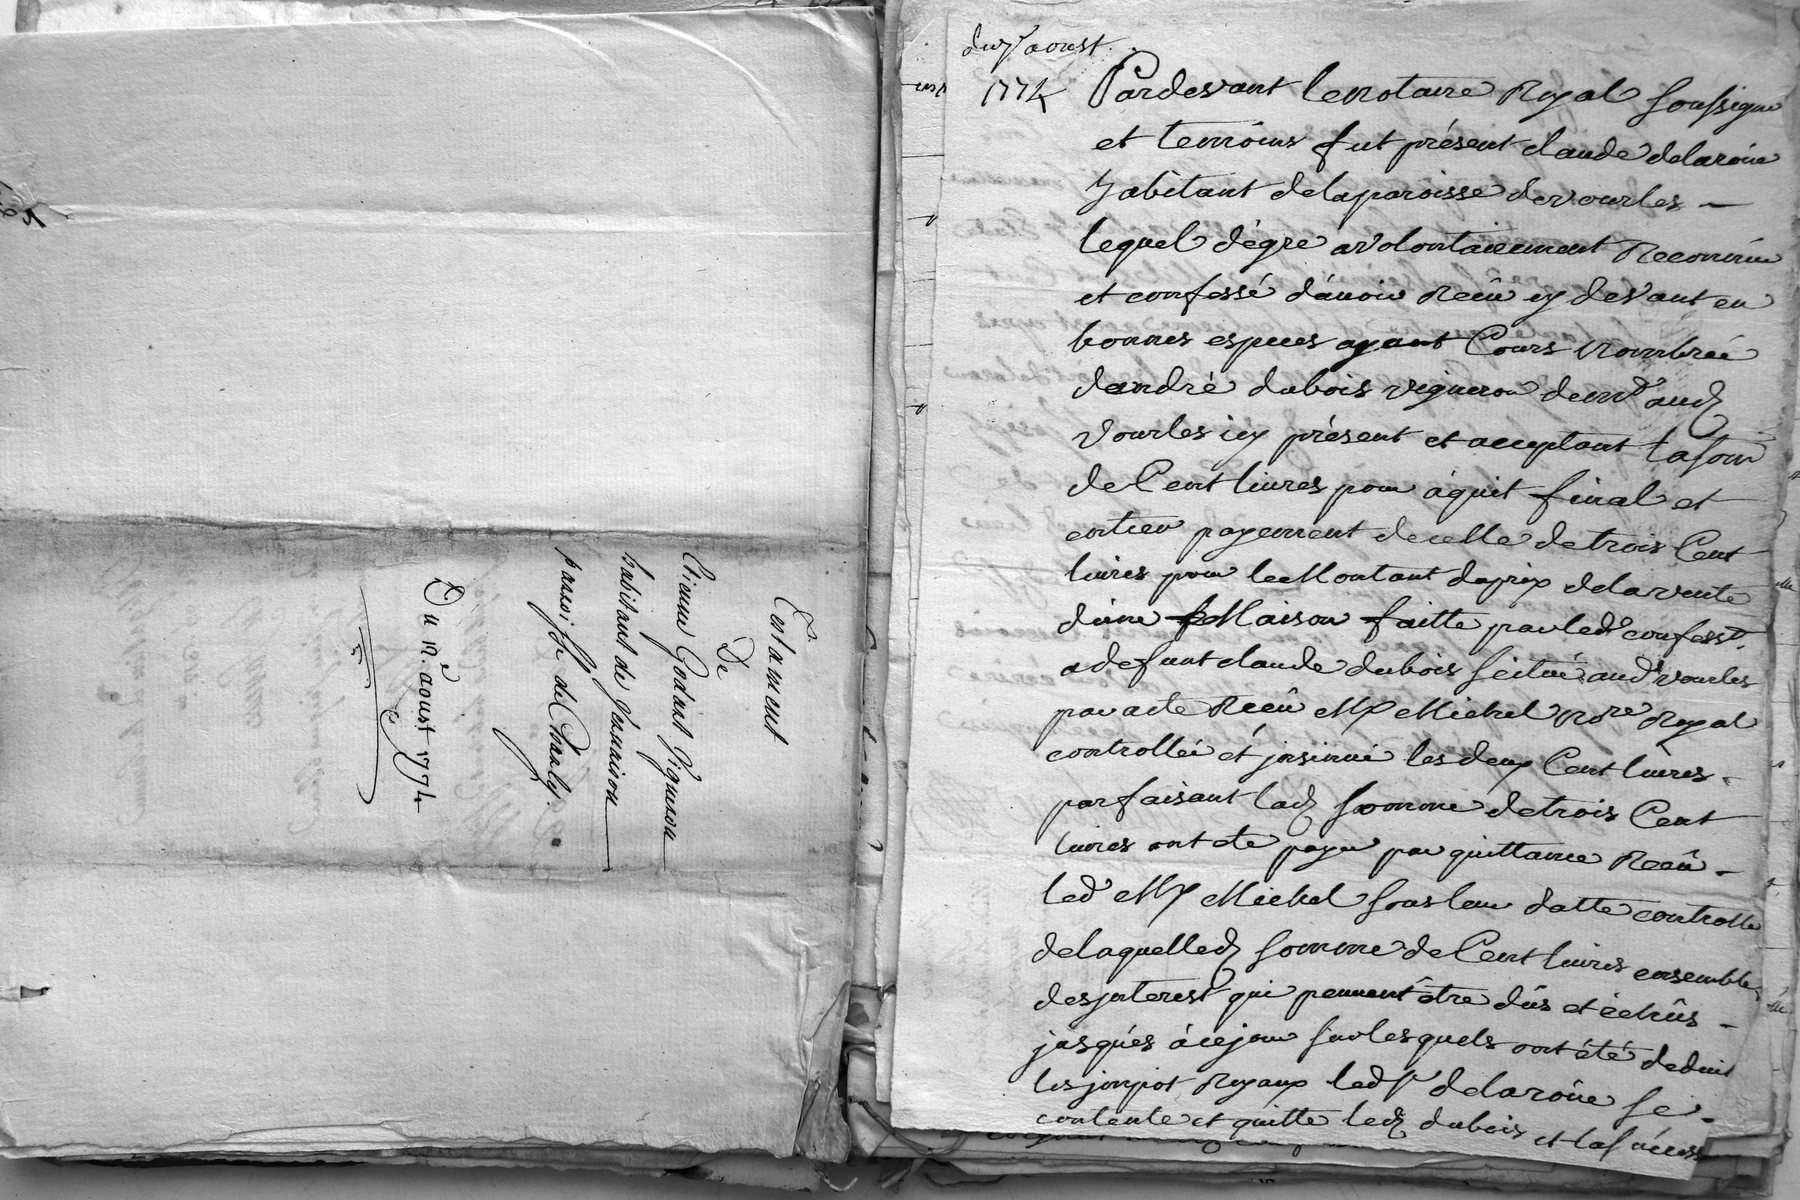 Testament
De
Etienne Godant Vigneron
habitant de
paroisse de Charly.
Du aoust 1774
du aoust
1774
Pardevant le notaire Royal soussigne
et temoins fut présent claude delaroüe
habitant de la paroisse de vourles
lequel dégré a volontairement Reconnu
et confessé d'avoir Recû cy devant en
bonnes especes ayant Cours nombreé
dandré dubois vigneron dem.t aud
Vourles icy présent et acceptant la som
de Cent livres pour áquit final et
entier payement de celle de trois Cent
livres pour le Montant du prix de la vente
dúne Maison faitte par led.t confess.t
a defunt claude dubois scitué aud.t vourles
par acte Recû M.e Michel no.re Royal
controllée et jnsinué les deux Cent livres
parfaisant lad somme de trois Cent
livres ont ete payer par quittance Recû
led M.e Michel sous leur datte controlle
de laquelled somme de Cent livres ensemble
des jnterest qui peuvent être dûs et échûs
jusqués à ce jour sur lesquels ont été deduit
les jmpot Royaux led S.r delaroüe se
contente et quitte led dubois et